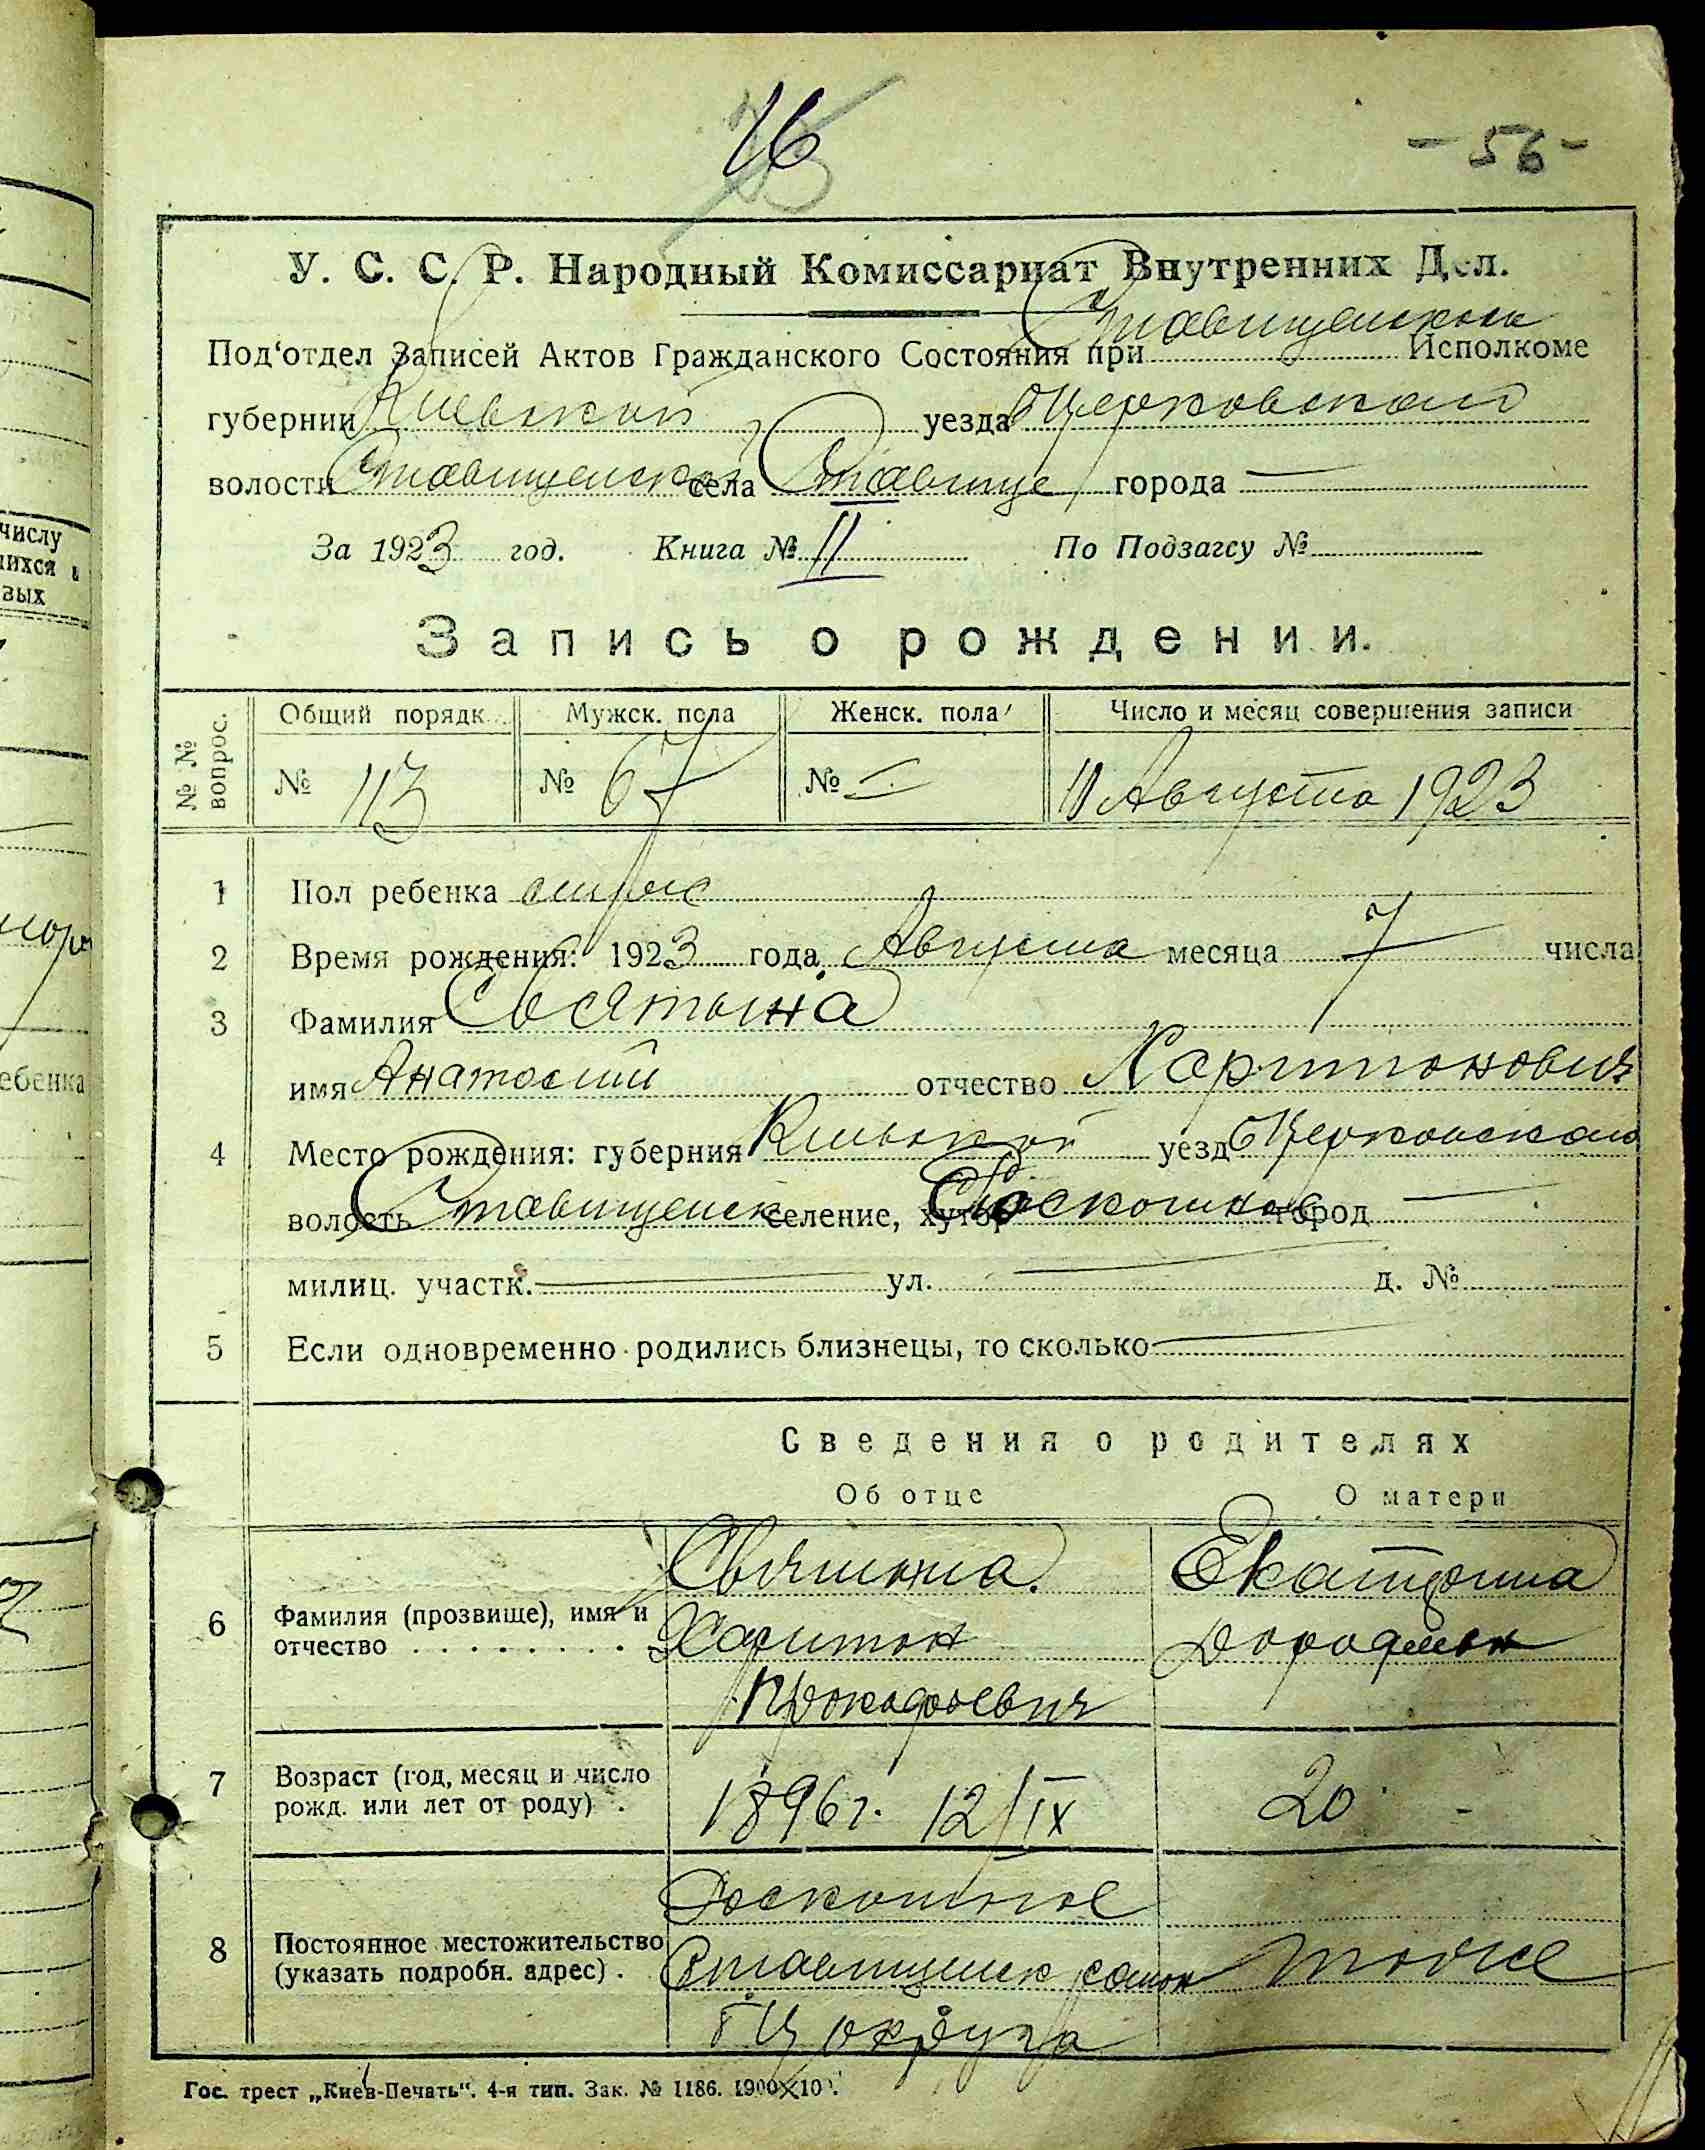 76
- 56 -
У. С. С. Р. Народный Комиссариат Внутренних Дел.
Под'отдел Записей Актов Гражданского Состояния при Ставищенском Исполкоме
губернии Киевской уезда БЦерковского
волости Ставищенской села Ставище города —
За 1923 год. Книга № II По Подзагсу №
Запись о рождении.
№ № вопрос.
Общий порядк. Мужск. пола Женск. пола Число и месяц совершения записи
№ 113 № 67 № — 11 Августа 1923
1 Пол ребенка
2 Время рождения: 1923 года Августа месяца 7 числа
3 Фамилия Святына
имя Анатолий отчество Харитонович
4 Место рождения: губерния Киевской уезд БЦерковского
волость Ставищенск селение, хутор Роскошная город —
милиц. участк. — ул. — д. №
5 Если одновременно родились близнецы, то сколько —
Сведения о родителях
Об отце О матери
6 Фамилия (прозвище), имя и отчество
Святына Харитон Прокофьевич
Екатерина
7 Возраст (год, месяц и число рожд. или лет от роду) .
1896 г. 12/IX
20
8 Постоянное местожительство (указать подробн. адрес) .
Роскошное
Ставищенск район
БЦ округа
тоже
Гос. трест „Киев-Печать". 4-я тип. Зак. № 1186. 1900×10
числу
зых
ебенка